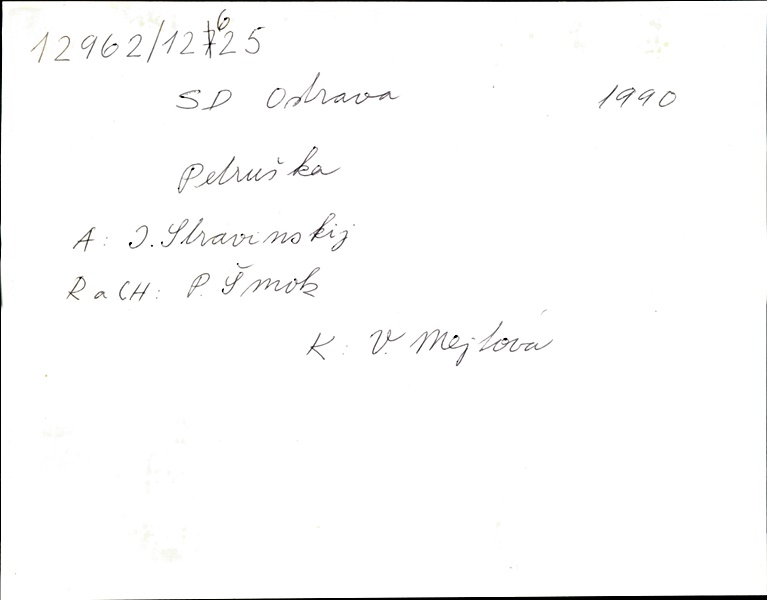 12962/12625
SD Ostrava 1990
Petruška
A: I. Stravinskij
R a CH: P. Šmok
K: V. Mejtová